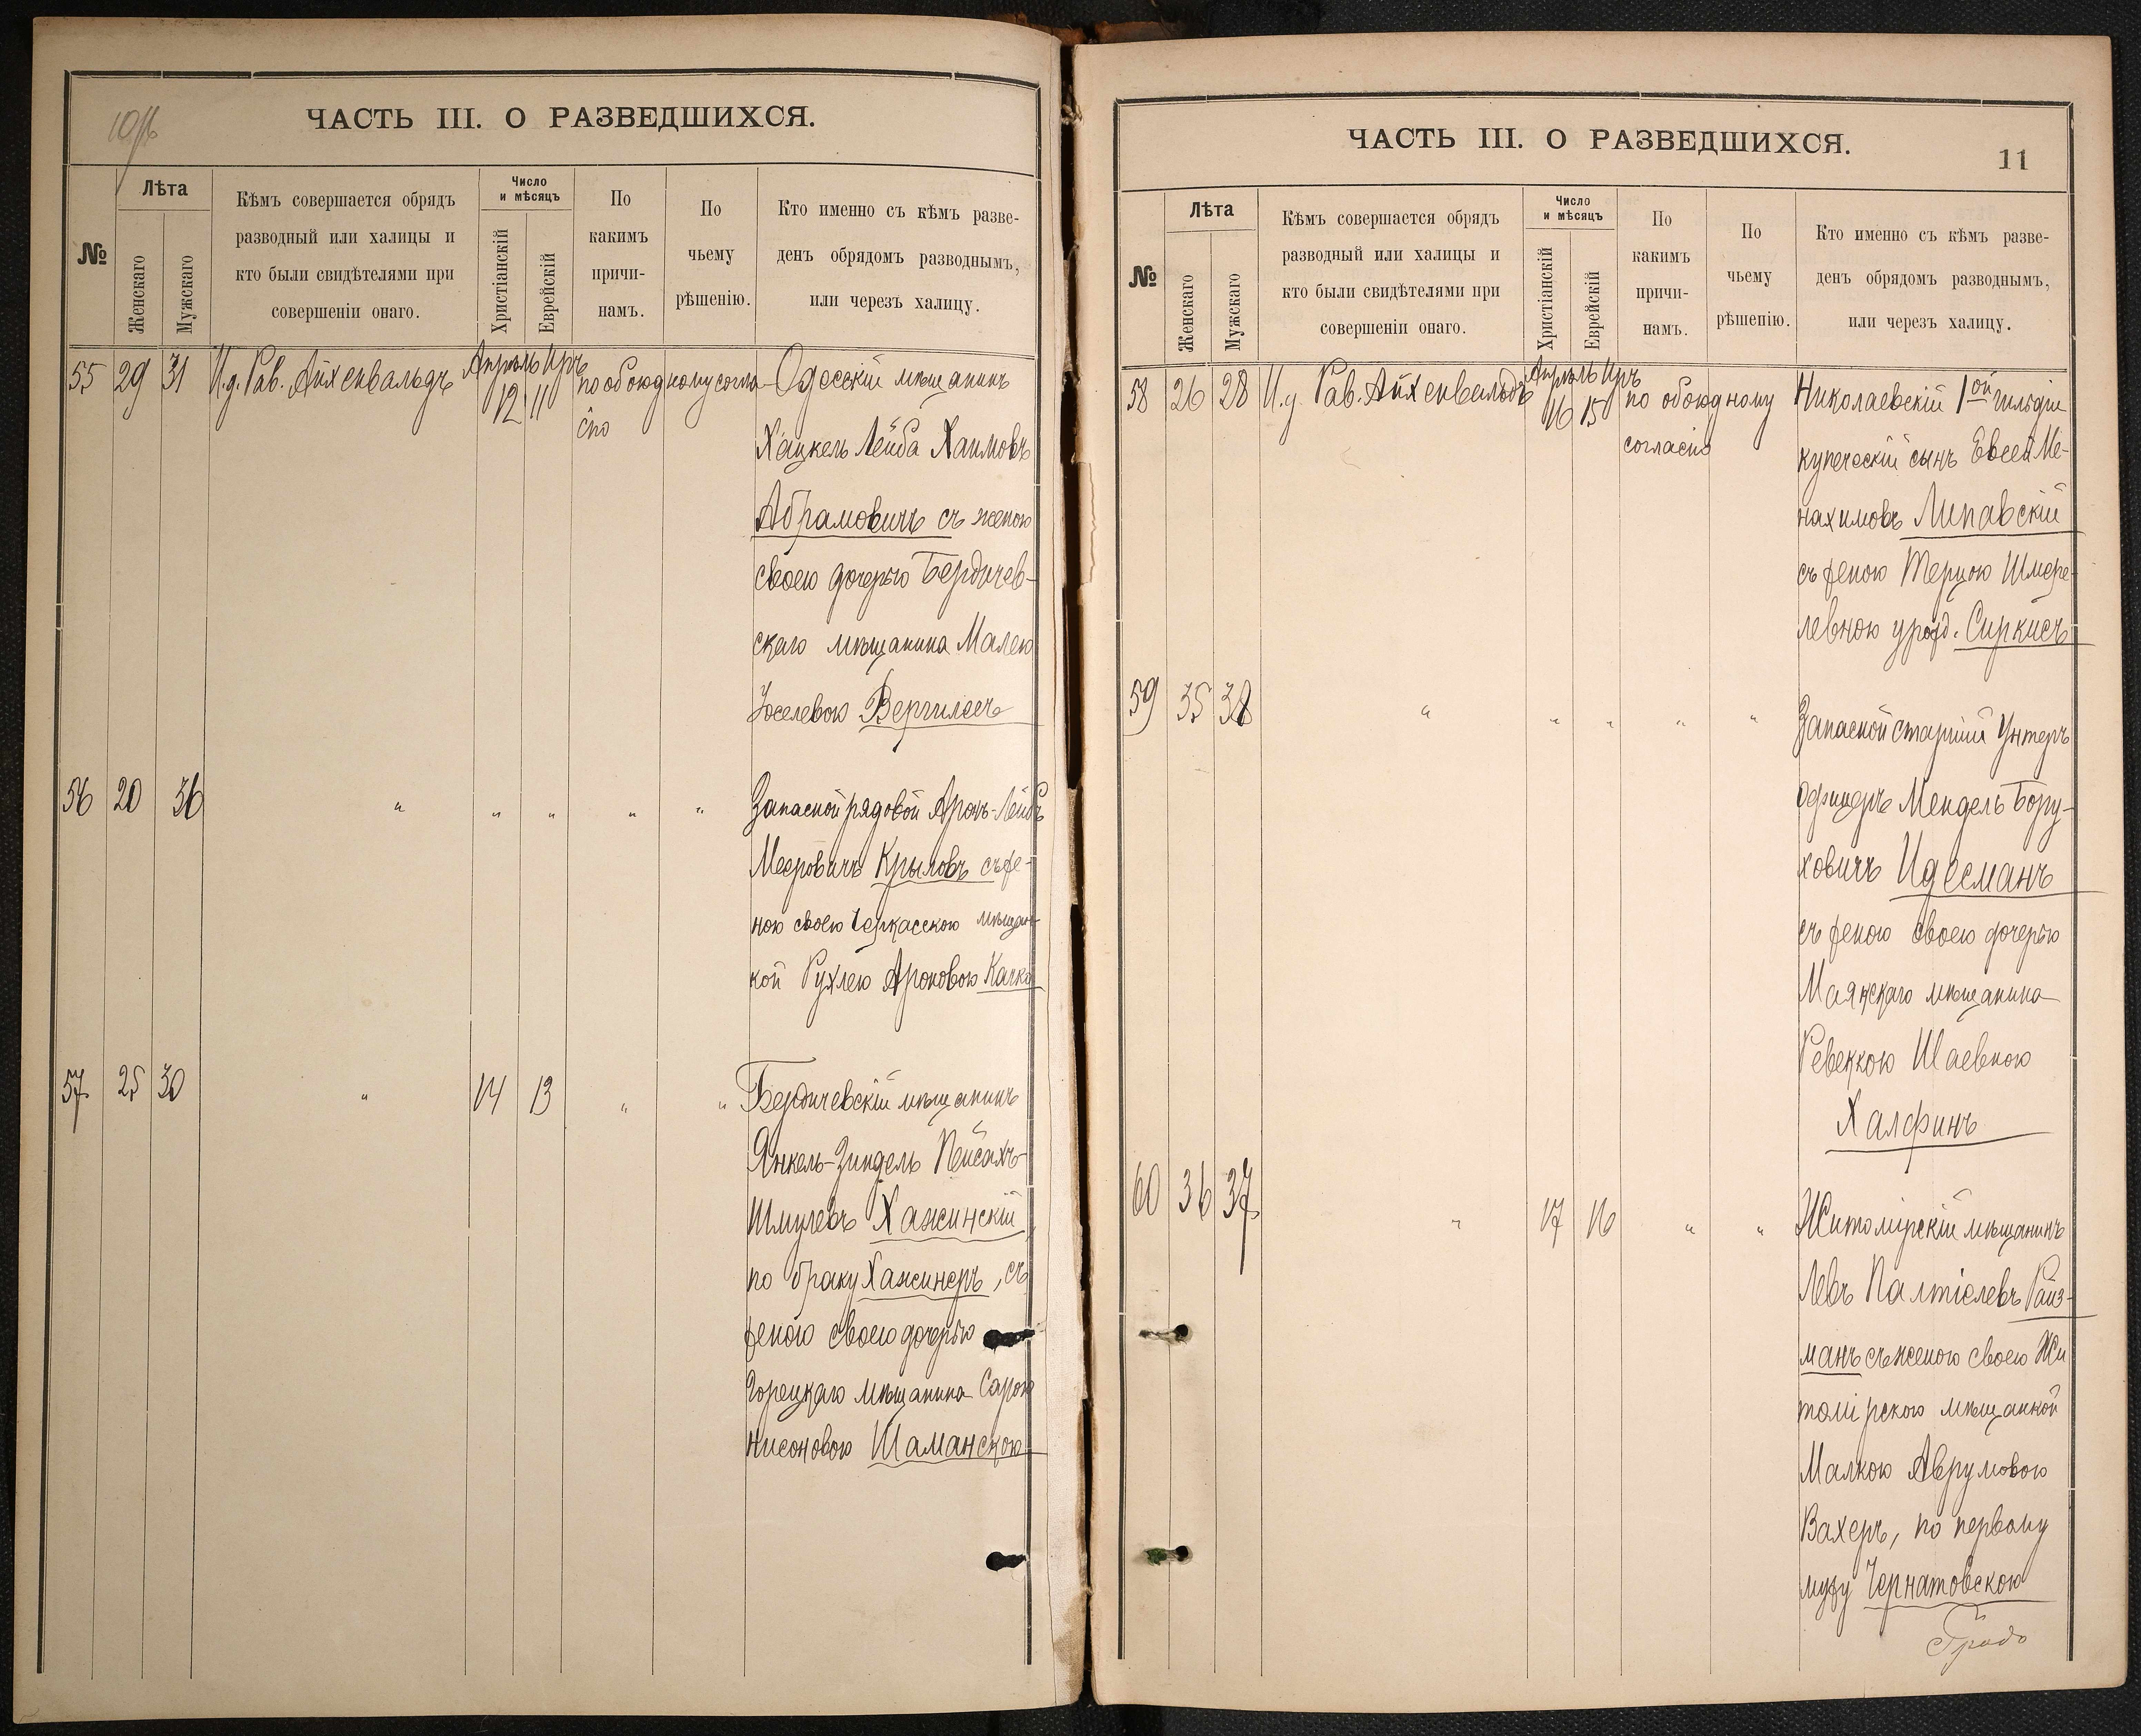 10/16
ЧАСТЬ III. О РАЗВЕДШИХСЯ.
№
Лѣта
Женскаго
Мужскаго
Кѣмъ совершается обрядъ
разводный или халицы и
кто были свидѣтелями при
совершеніи онаго.
Число
и мѣсяцъ
Христіанскій
Еврейскій
По
какимъ
причи-
намъ.
По
чьему
рѣшенію.
Кто именно съ кѣмъ разве-
денъ обрядомъ разводнымъ,
или черезъ халицу.
55 29 31 И.д. Рав. Айхенвальдъ Апрѣль Иръ 12 11 по обоюдному согла- Одесскій мѣщанинъ
сію
Хацкель Лейба Хаимовъ
Абрамовичъ съ женою
своею дочерью Бердичев-
скаго мѣщанина Малею
Іоселевою Вергилесъ
56 20 36 " " " " " Запасной рядовой Аронъ-Лейбъ
Мееровичъ Крыловъ съ же-
ною своею Черкасскою мѣщан-
кой Рухлею Ароновою Качка
57 25 30 " 14 13 " " Бердичевскій мѣщанинъ
Янкель-Зиндель Пейсахъ-
Шмулевъ Хажинскій,
по браку Хажинеръ, съ
женою своею дочерью
Горецкаго мѣщанина Сарою
Нисоновою Шаманскою
ЧАСТЬ III. О РАЗВЕДШИХСЯ.
11
№
Лѣта
Женскаго
Мужскаго
Кѣмъ совершается обрядъ
разводный или халицы и
кто были свидѣтелями при
совершеніи онаго.
Число
и мѣсяцъ
Христіанскій
Еврейскій
По
какимъ
причи-
намъ.
По
чьему
рѣшенію.
Кто именно съ кѣмъ разве-
денъ обрядомъ разводнымъ,
или черезъ халицу.
58 26 28 И.д. Рав. Айхенвальдъ Апрѣль Иръ 16 15 по обоюдному Николаевскій 1ой гильдіи
согласію
купеческій сынъ Евсей Ме-
нахимовъ Липавскій
съ женою Терцою Шмере-
левною урожд. Сиркисъ
59 35 38 " " " " " Запасной старшій Унтеръ
Офицеръ Мендель Бору-
ховичъ Идесманъ
съ женою своею дочерью
Маякскаго мѣщанина
Ревеккою Шаевною
Халфинъ
60 36 37 " 17 16 " " Житомірскій мѣщанинъ
Левъ Палтіелевъ Райз-
манъ съ женою своею Жи
томірскою мѣщанкой
Малкою Аврумовою
Вахеръ, по первому
мужу Чернатовскою